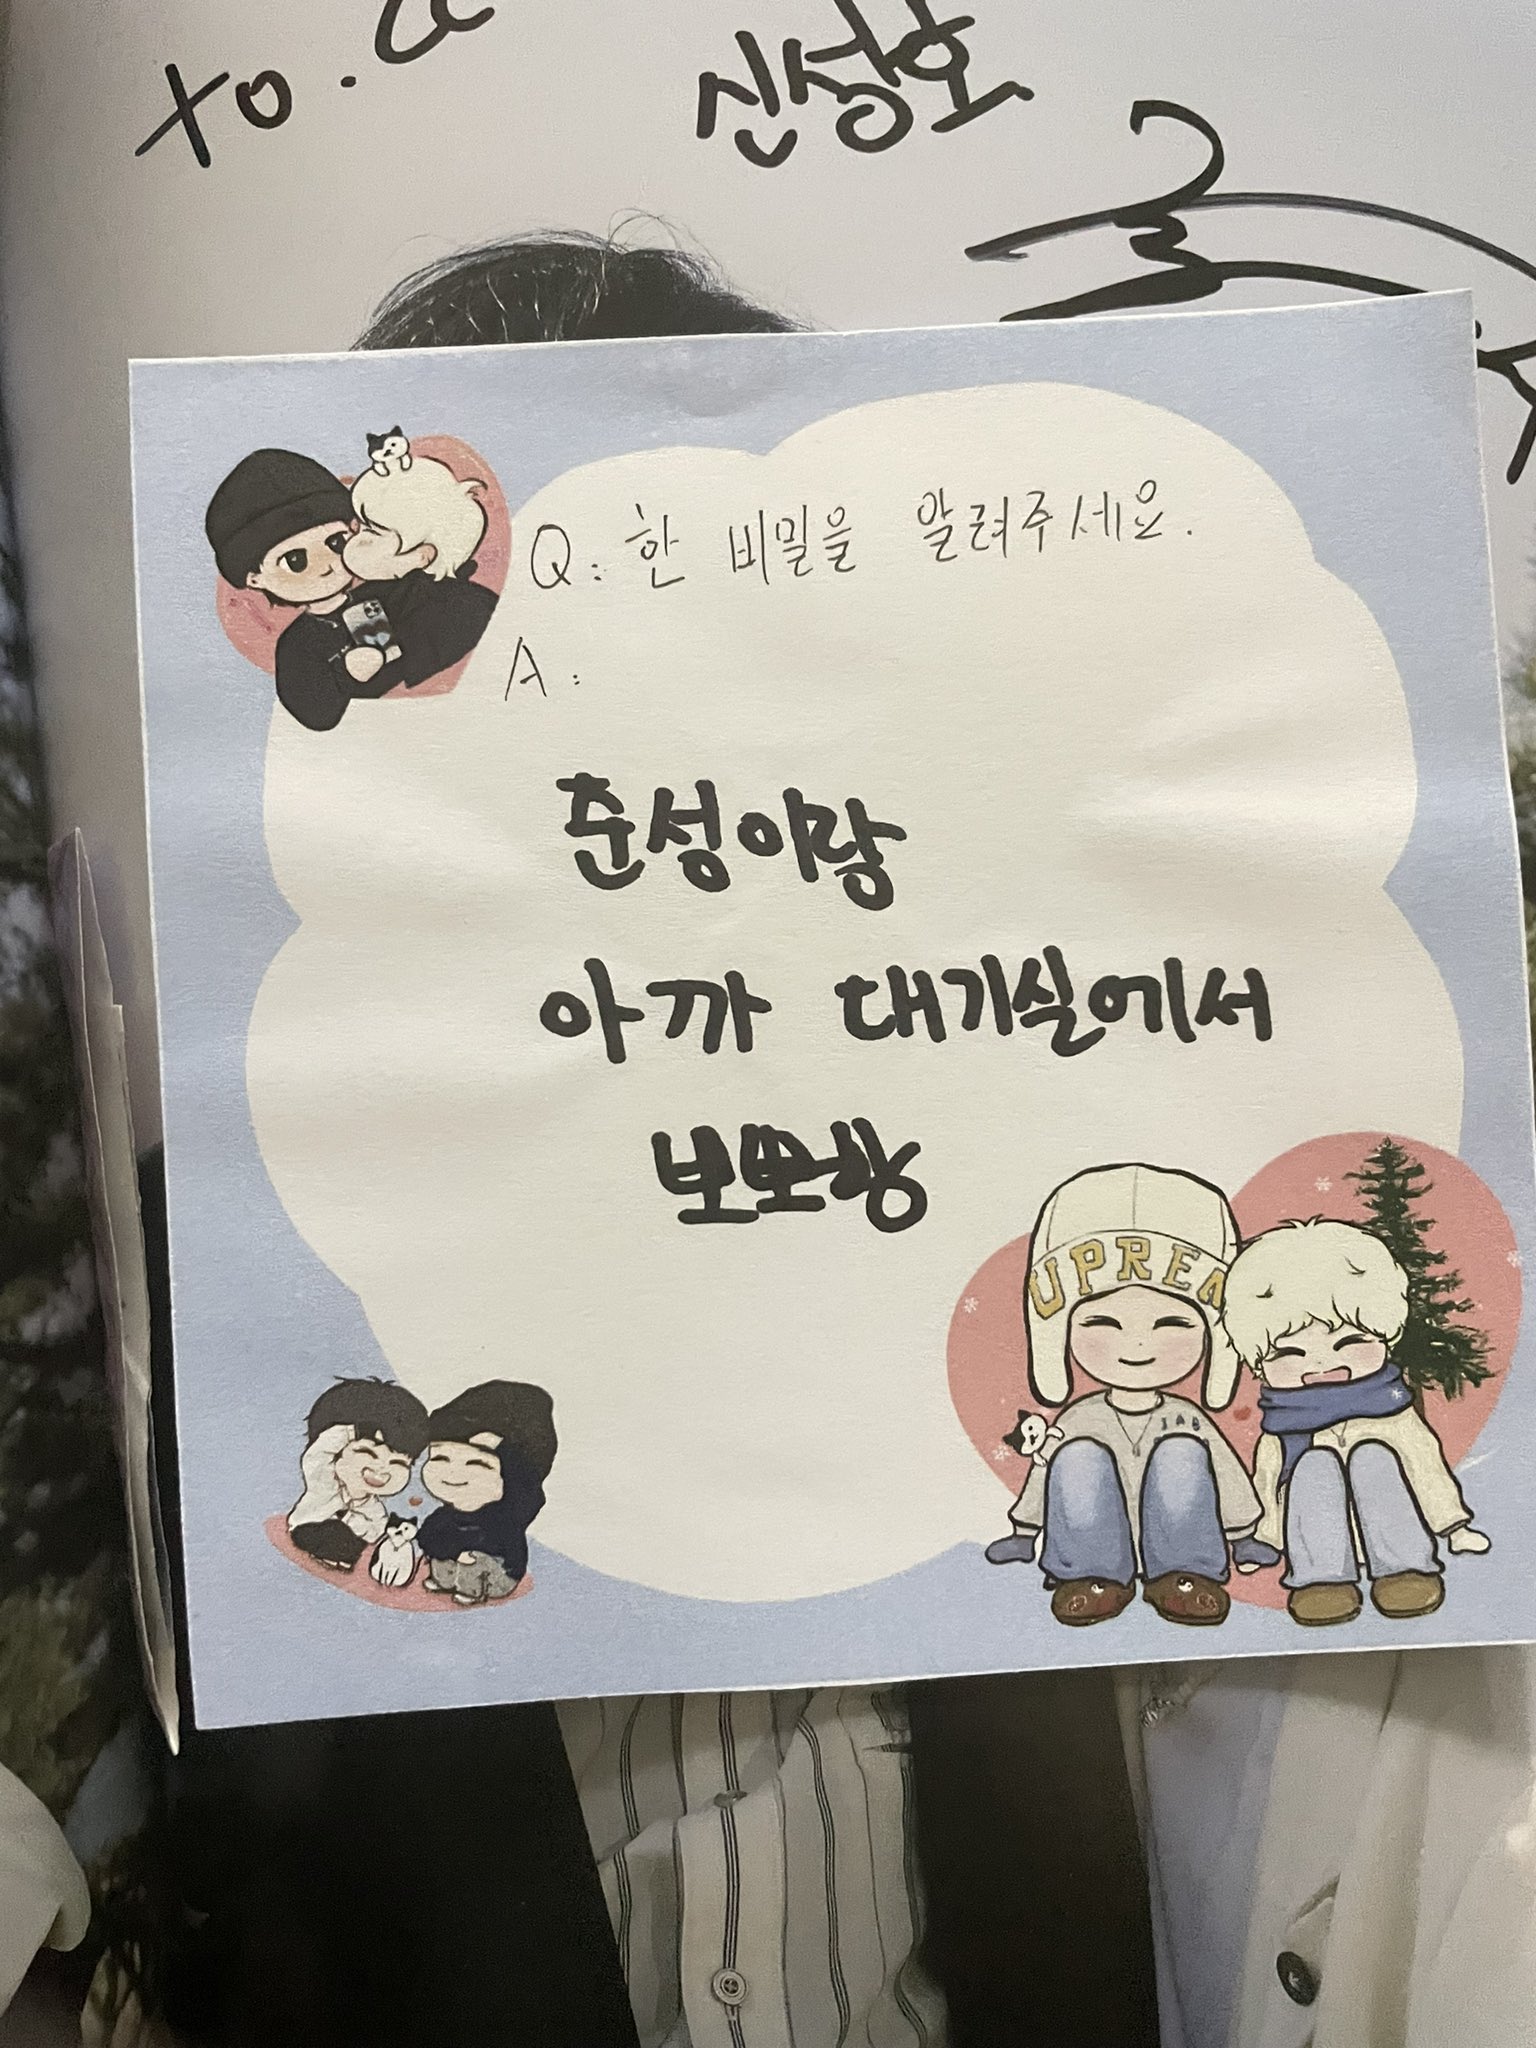 to.
신성호
Q: 한 비밀을 알려주세요.
A:
준성이랑
아까 대기실에서
뽀뽀함
UPREM
JAB